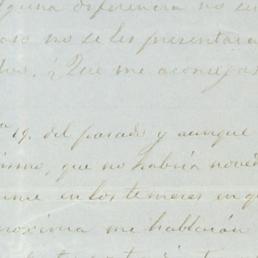 alguna diferencia no se
caso no se les presentara
dos. ¿Que me aconseja
19. del pasado y aunque
mismo, que no habria nove
me en los temores en q
proxima me hablarán